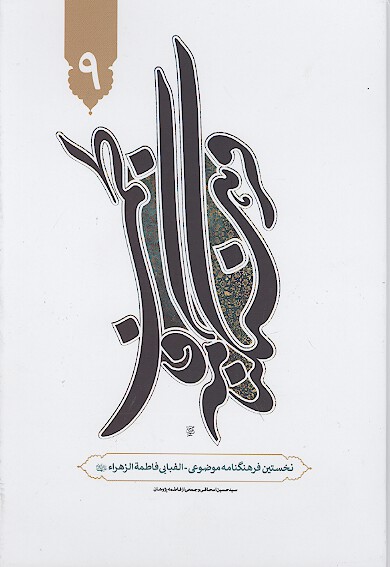 ۹
فرهنگنامه فاطمی
نخستین فرهنگنامه موضوعی - الفبایی فاطمة الزهراء
سیدحسین اسحاقی و جمعی از فاطمه پژوهان